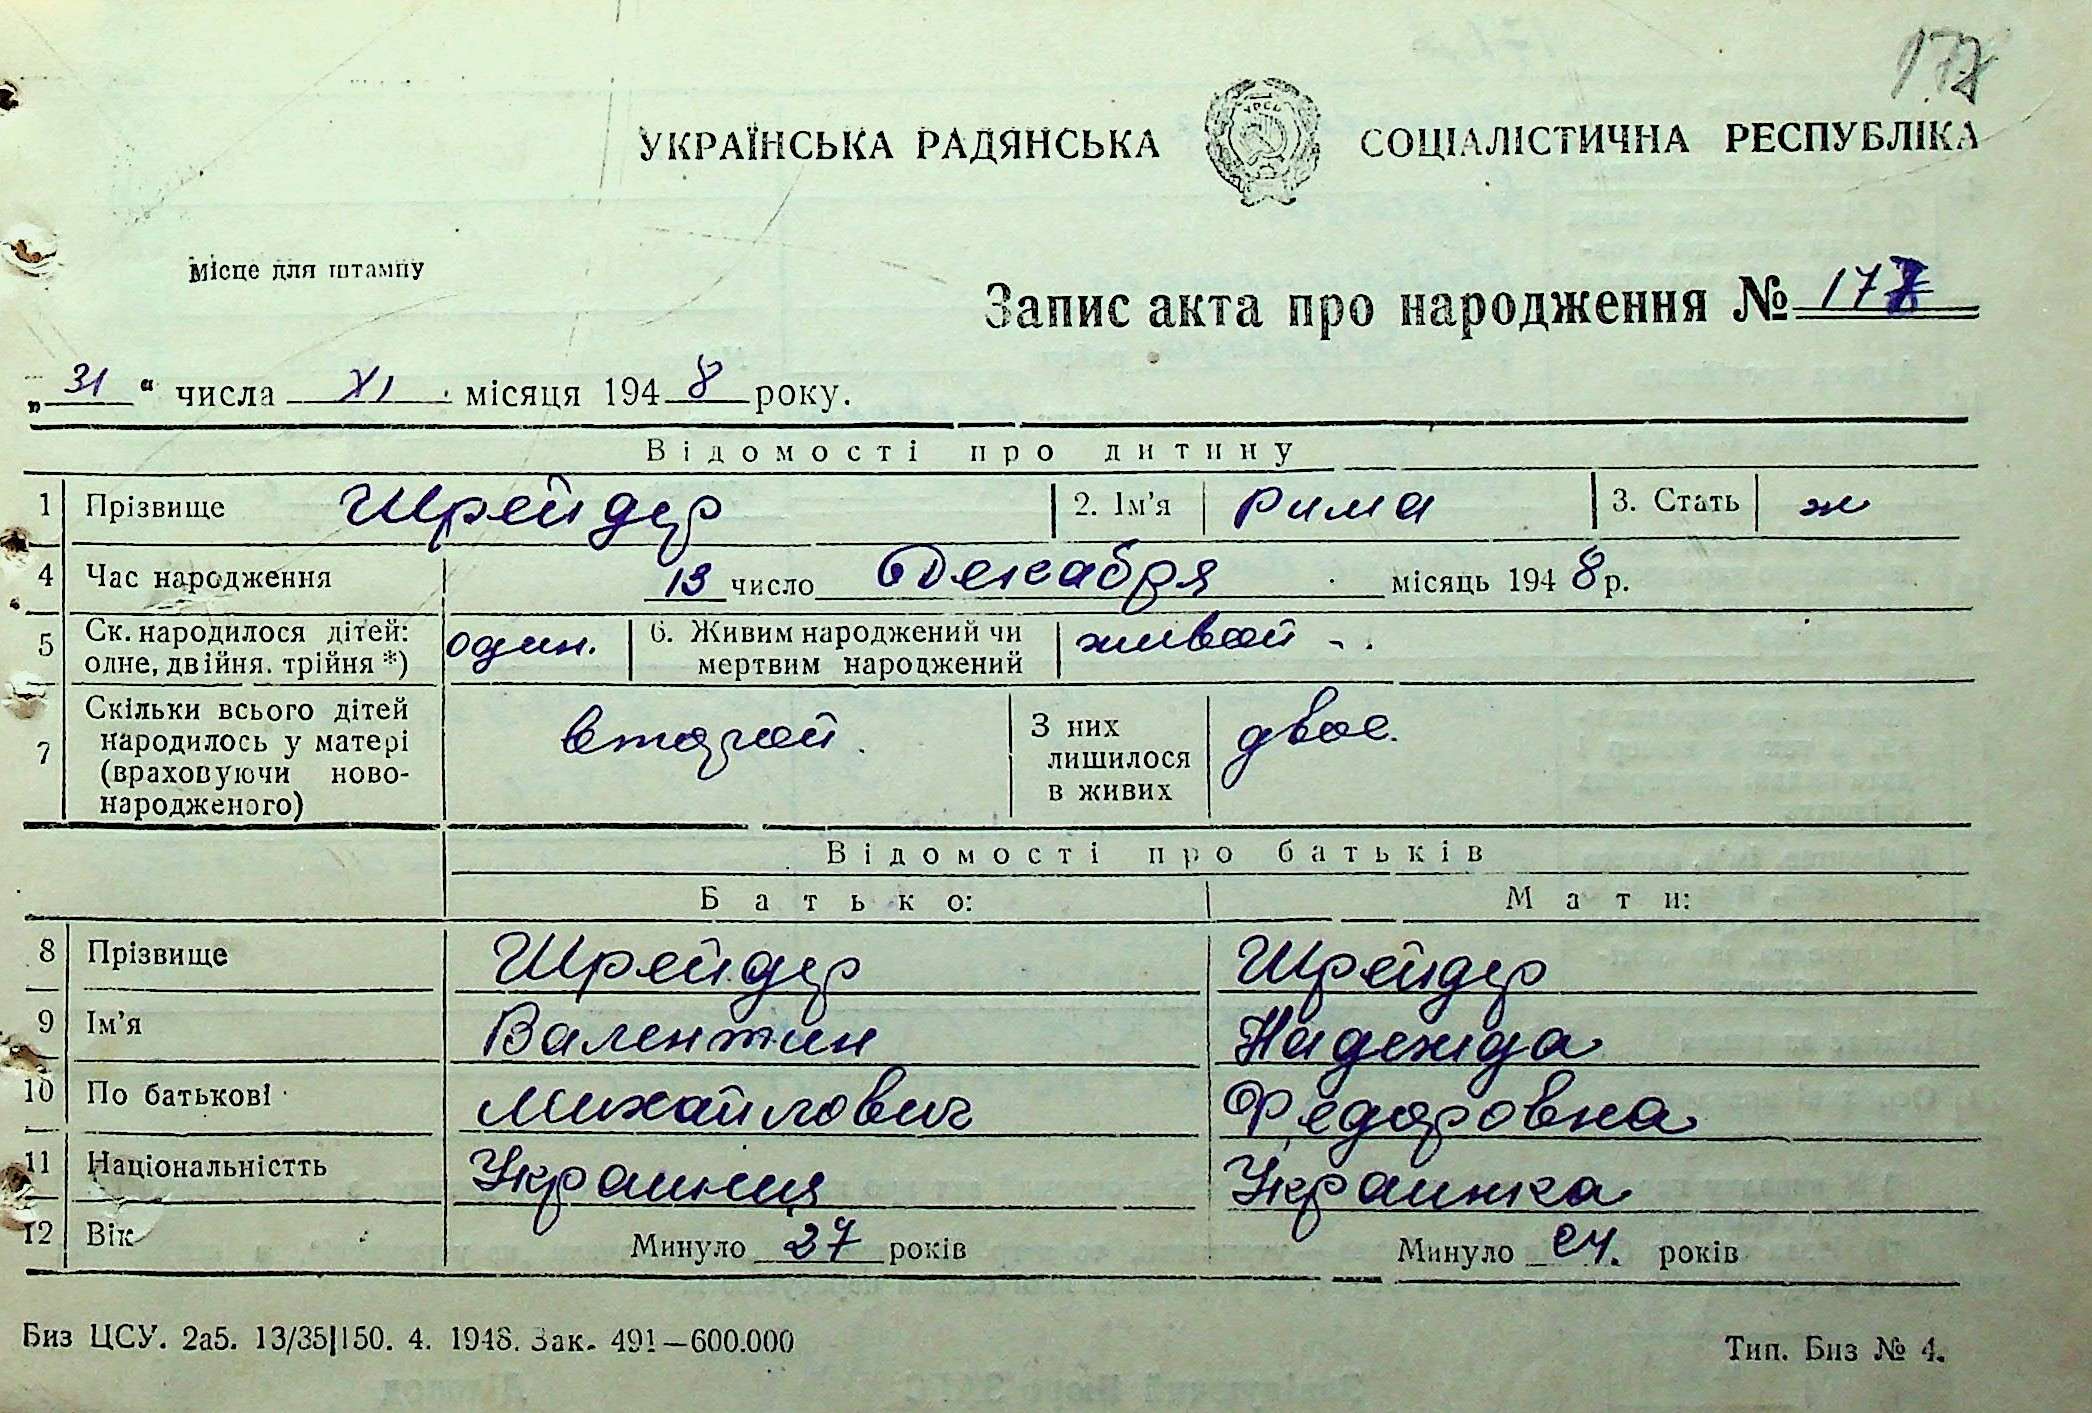 177
УКРАЇНСЬКА РАДЯНСЬКА СОЦІАЛІСТИЧНА РЕСПУБЛІКА
УРСР
Місце для штампу
Запис акта про народження № 177
„31“ числа XI місяця 1948 року.
Відомості про дитину
1 Прізвище Шрейдер 2. Ім'я Рима 3. Стать ж
4 Час народження 13 число Декабря місяць 1948 р.
5 Ск. народилося дітей: одне, двійня. трійня *) один. 6. Живим народжений чи мертвим народжений живой - .
7 Скільки всього дітей народилось у матері (враховуючи ново-народженого) второй. З них лишилося в живих двое.
Відомості про батьків
Батько: Мати:
8 Прізвище Шрейдер Шрейдер
9 Ім'я Валентин Надежда
10 По батькові Михайлович Федоровна
11 Національністть Украинец Украинка
12 Вік Минуло 27 років Минуло 24. років
Биз ЦСУ. 2а5. 13/35|150. 4. 1948. Зак. 491—600.000 Тип. Биз № 4.